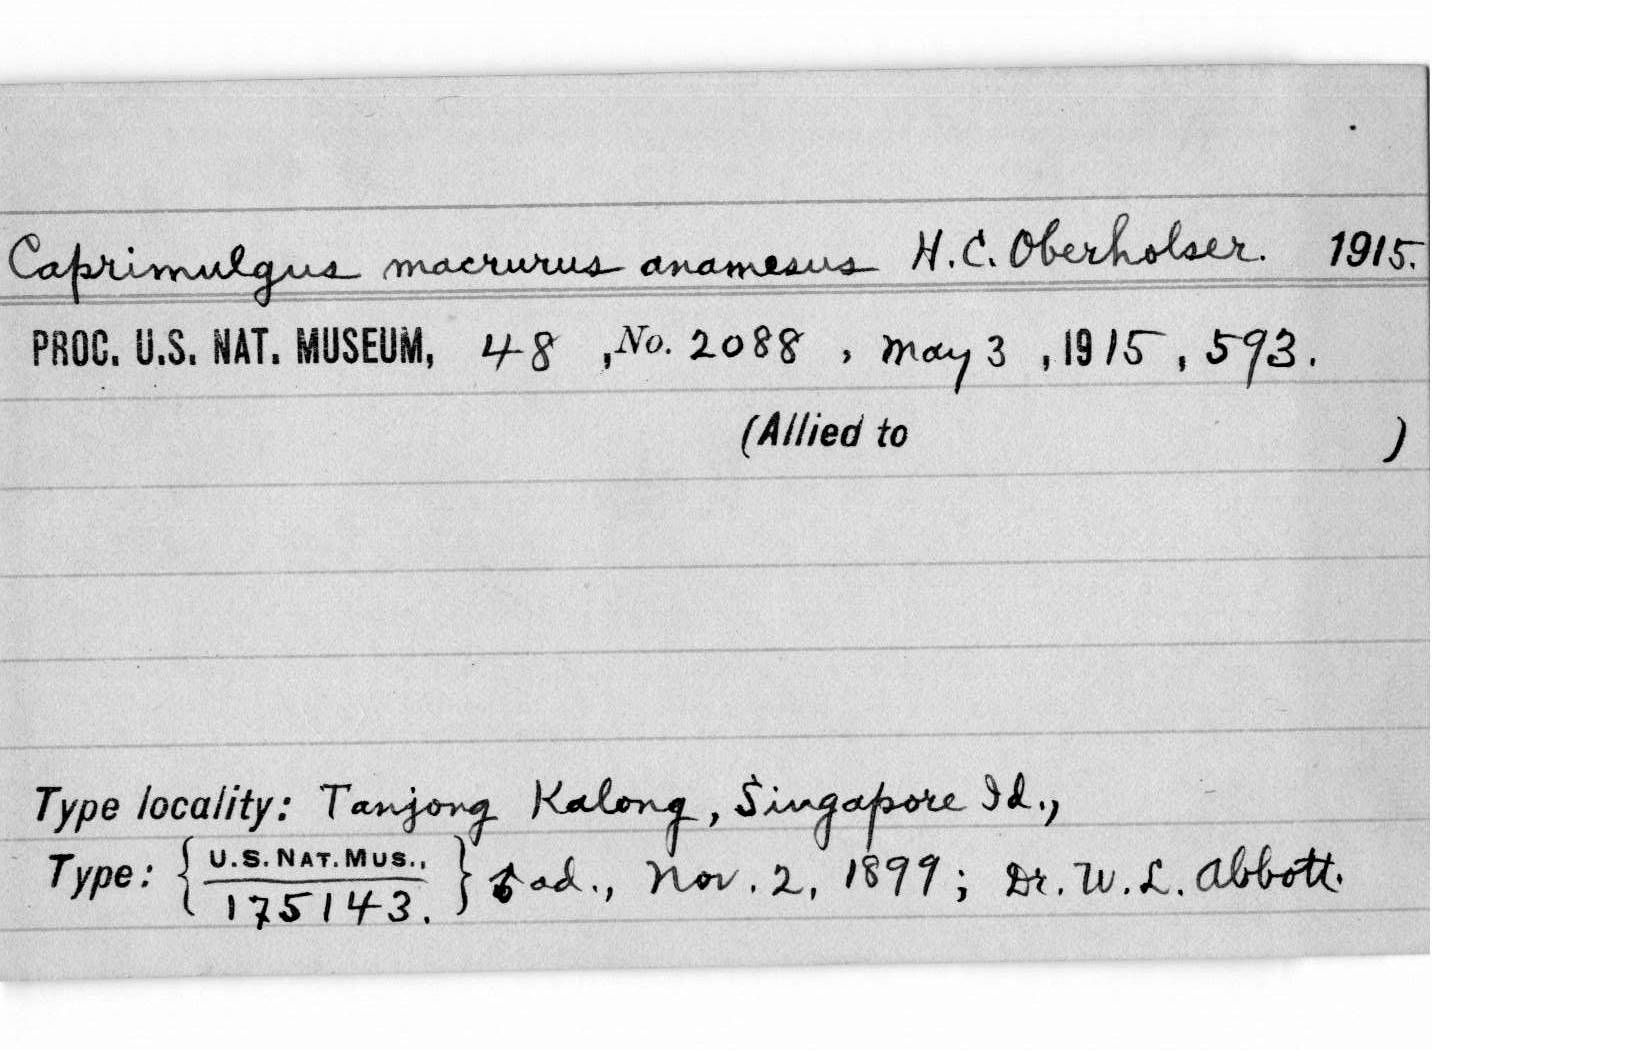 Caprimulgus macrurus anamesus H.C. Oberholser. 1915.
PROC. U.S. NAT. MUSEUM, 48 , No. 2088 , May 3 , 1915 , 593.
(Allied to )
Type locality: Tanjong Kalong, Singapore Id.,
Type: { U.S. NAT. MUS., 175143. } ad., Nov. 2, 1899; Dr. W. L. Abbott.